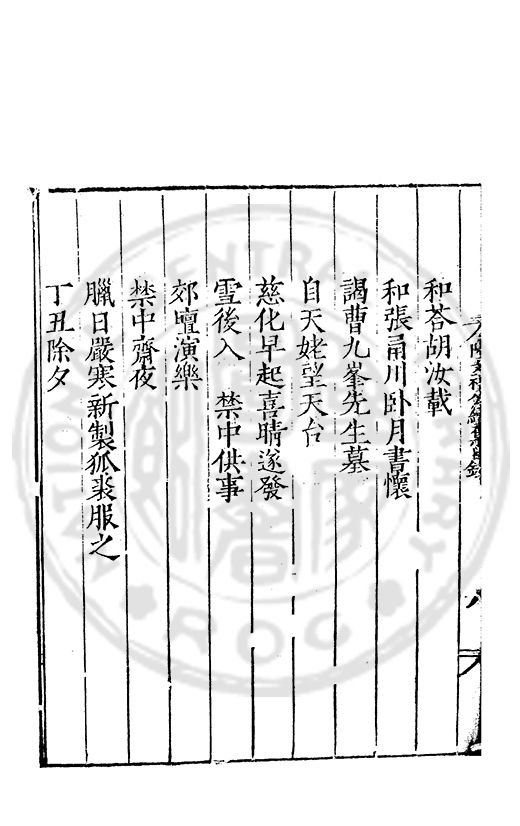 和荅胡汝載
和張甬川卧月書懷
謁曹九峯先生墓
自天姥望天台
慈化早起喜晴遂發
雪後入 禁中供事
郊壇演樂
禁中齋夜
臘日嚴寒新製狐裘服之
丁丑除夕